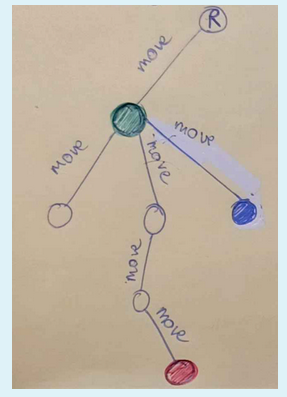 R
move
move
move
move
move
move